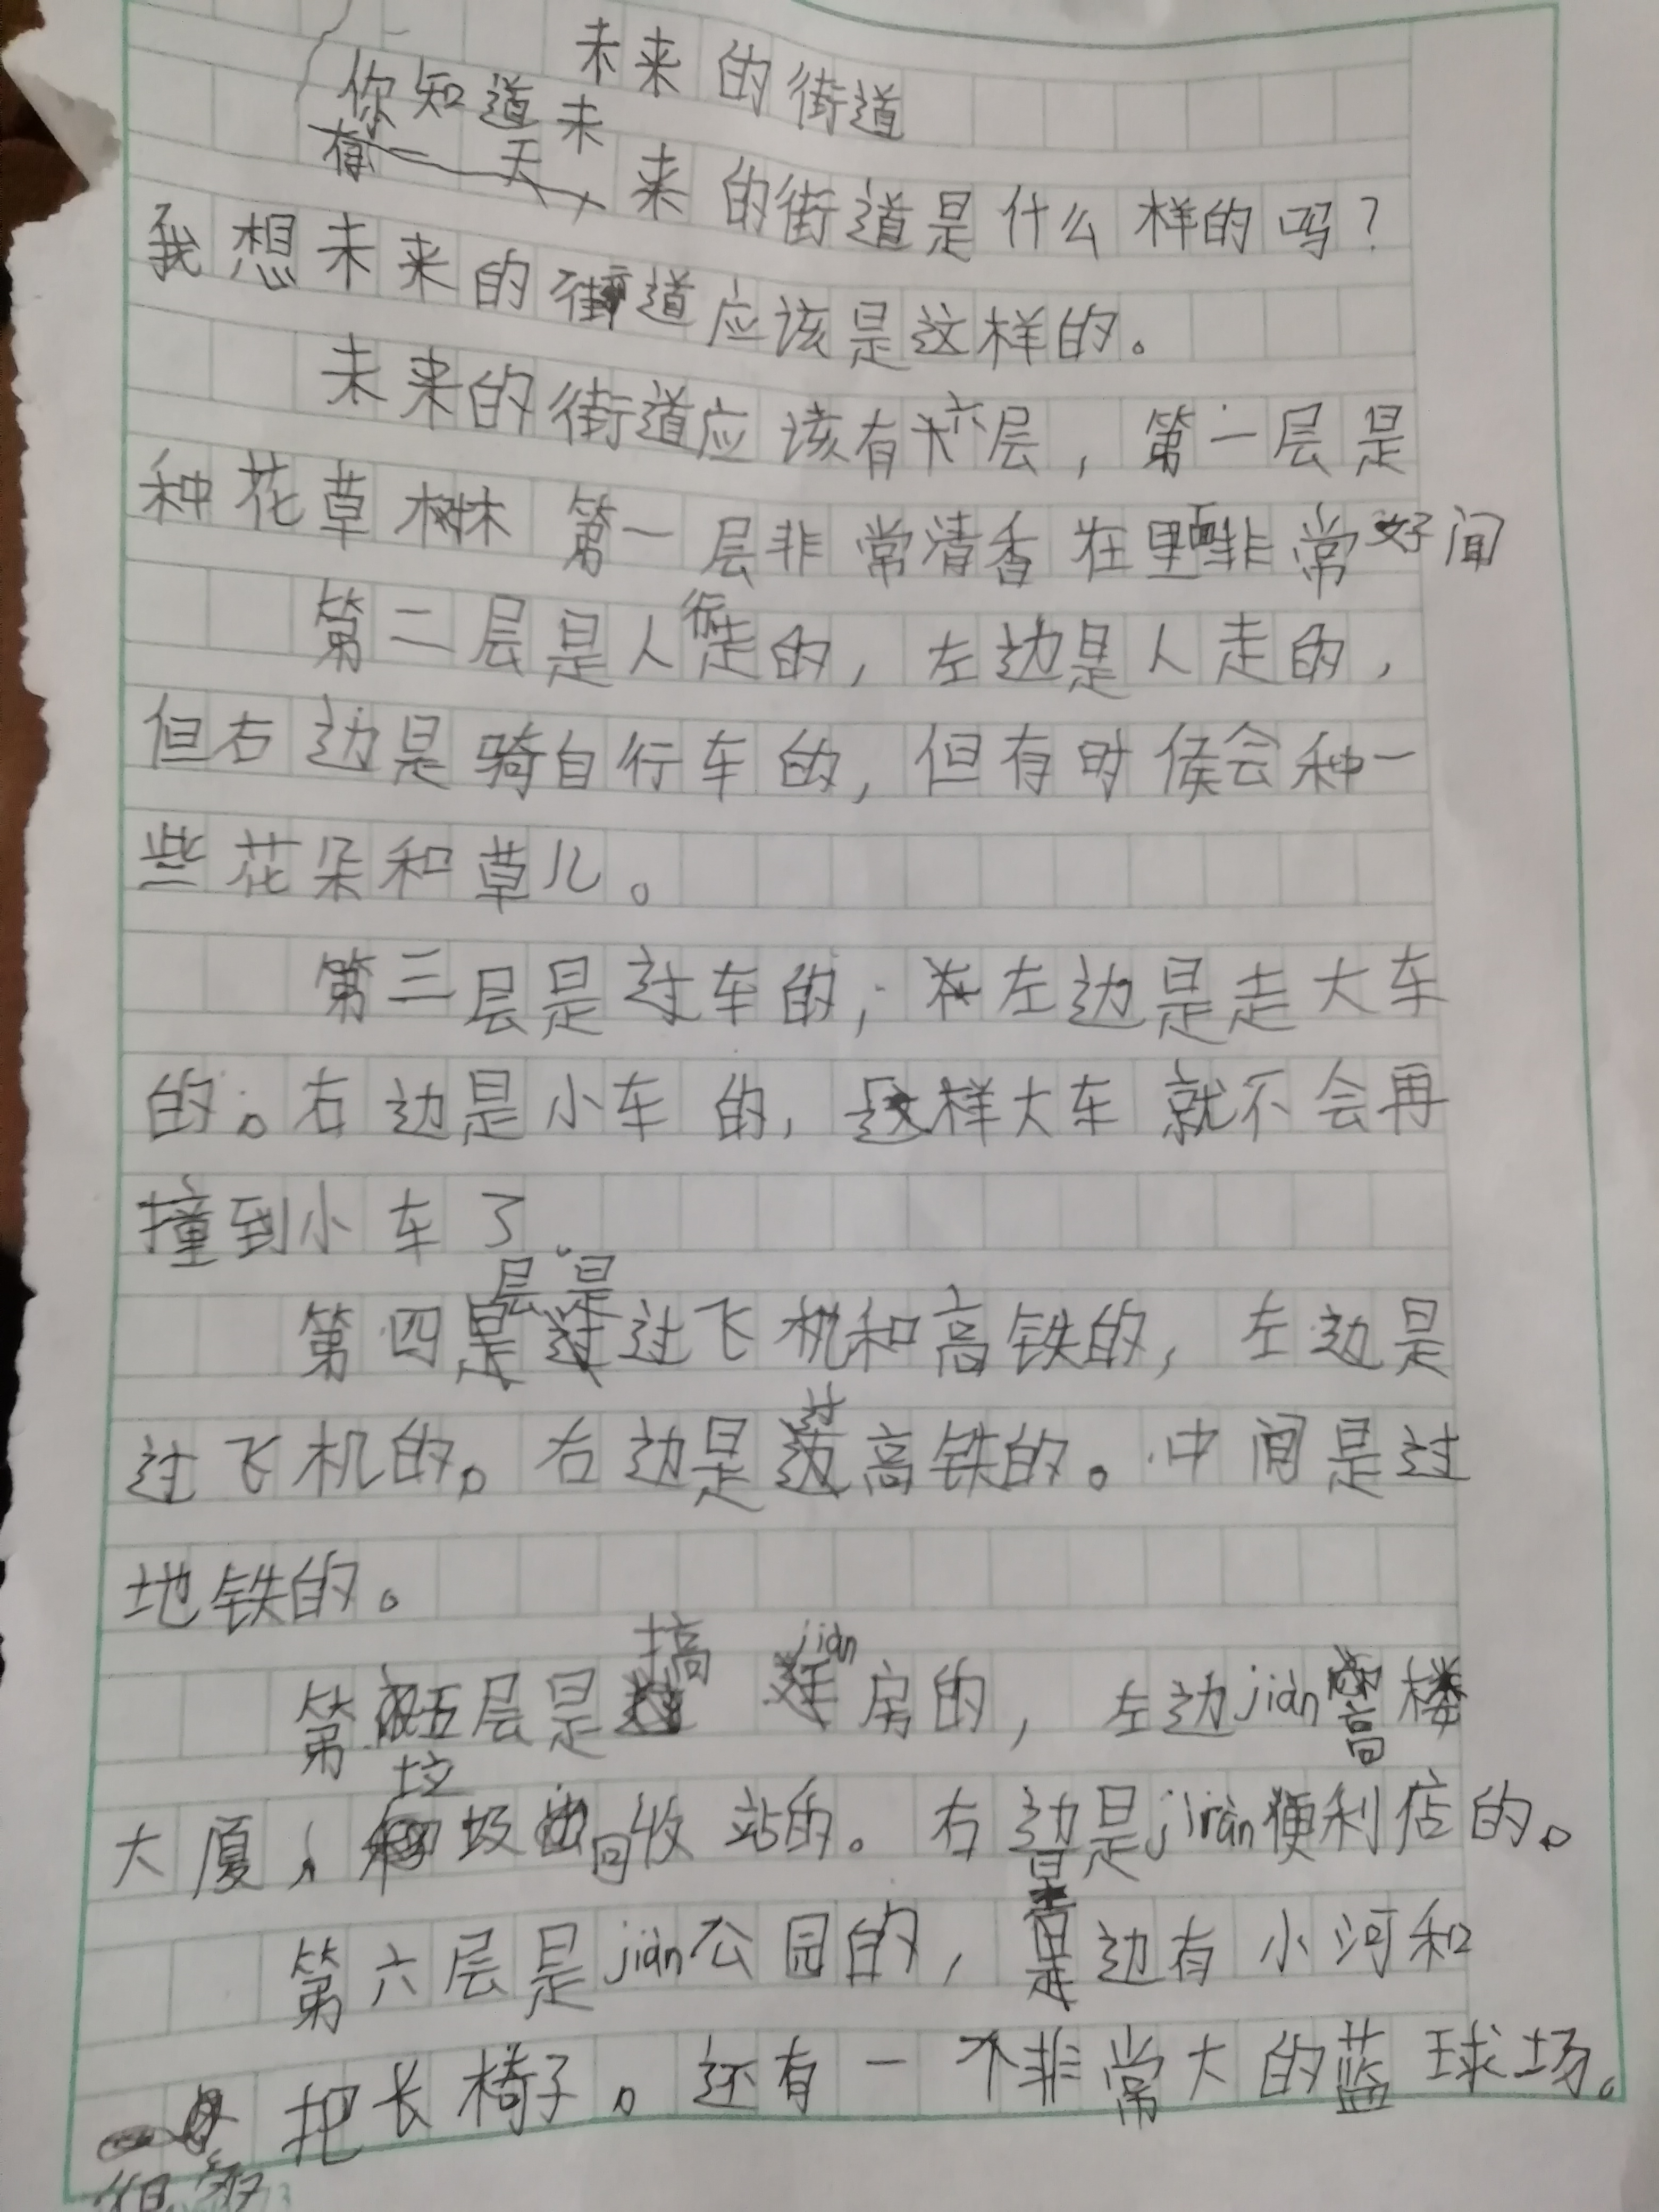 未来的街道
你知道未
有一天来的街道是什么样的吗？
我想未来的街道应该是这样的。
未来的街道应该有六层，第一层是
种花草树林 第一层非常清香在里面非常好闻
第二层是人行走的，左边是人走的，
但右边是骑自行车的，但有时候会种一
些花朵和草儿。
第三层是过车的，左边是走大车
的。右边是小车的，这样大车就不会再
撞到小车了.
层是
第四过飞机和高铁的，左边是
过飞机的。右边是过高铁的。中间是过
地铁的。
第五层是搞jiàn房的，左边jiàn高楼
大厦、垃圾回收站的。右边是jiràn便利店的。
第六层是jiàn公园的，边有小河和
很多把长椅子。还有一个非常大的蓝球场。